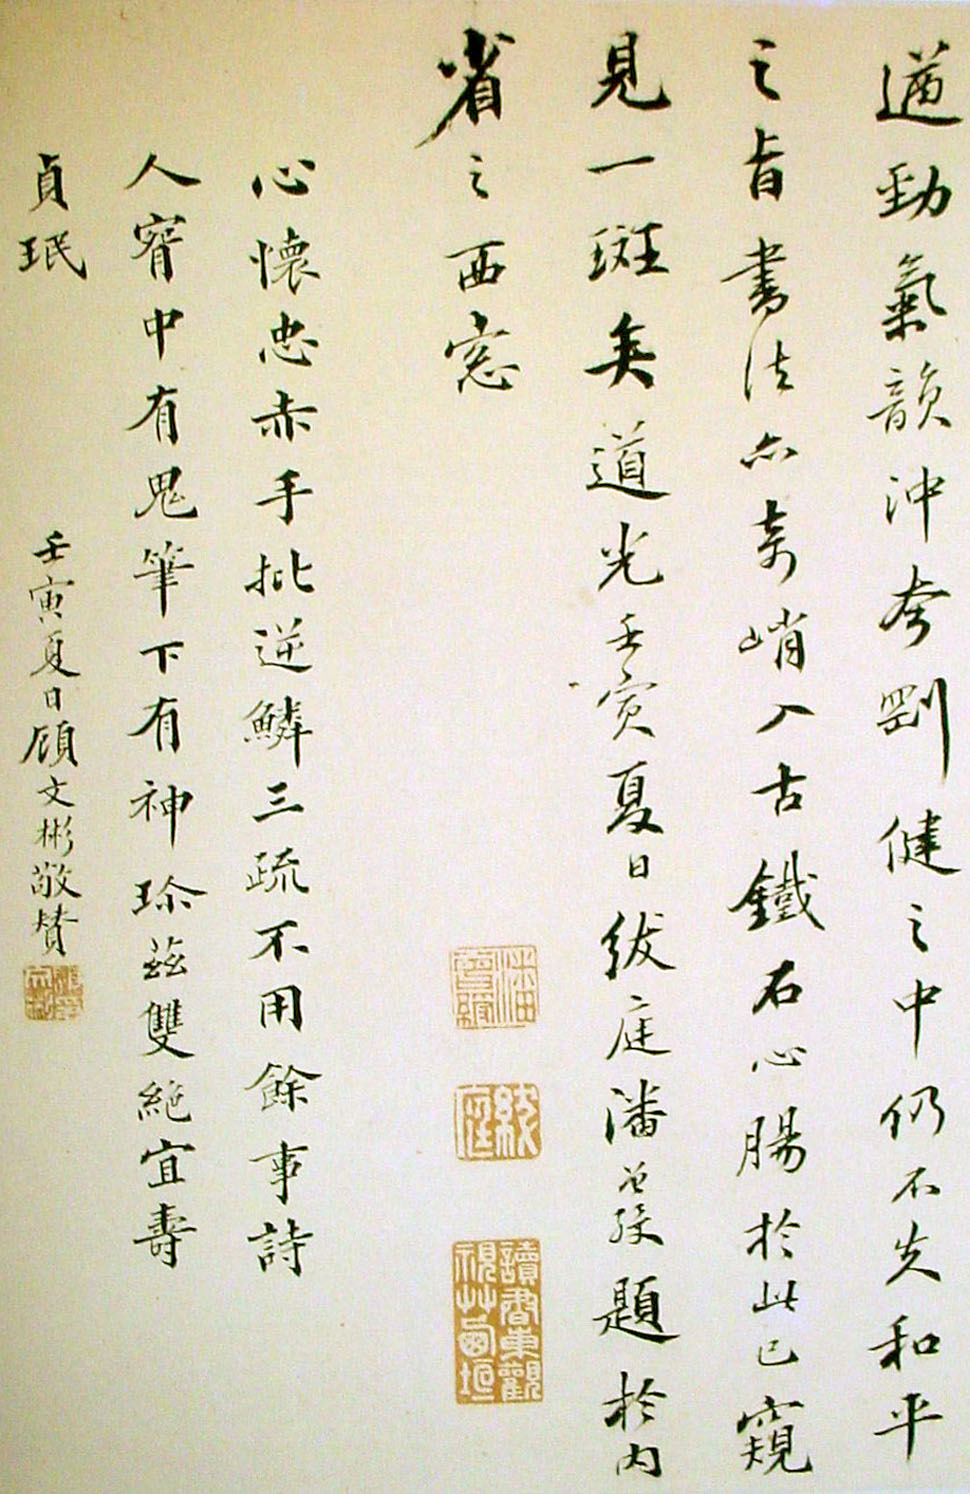 遒勁氣韻沖夸剛健之中仍不失和平
之旨書法亦奇峭入古鐵石心腸於此已窺
見一斑矣道光壬寅夏日紱庭潘曾綬題於內
省之西窓
潘曾綬
紱庭
讀書東觀視艸西垣
心懷忠赤手批逆鱗三疏不用餘事詩
人胷中有鬼筆下有神珎茲雙絶宜壽
貞珉
壬寅夏日顧文彬敬贊